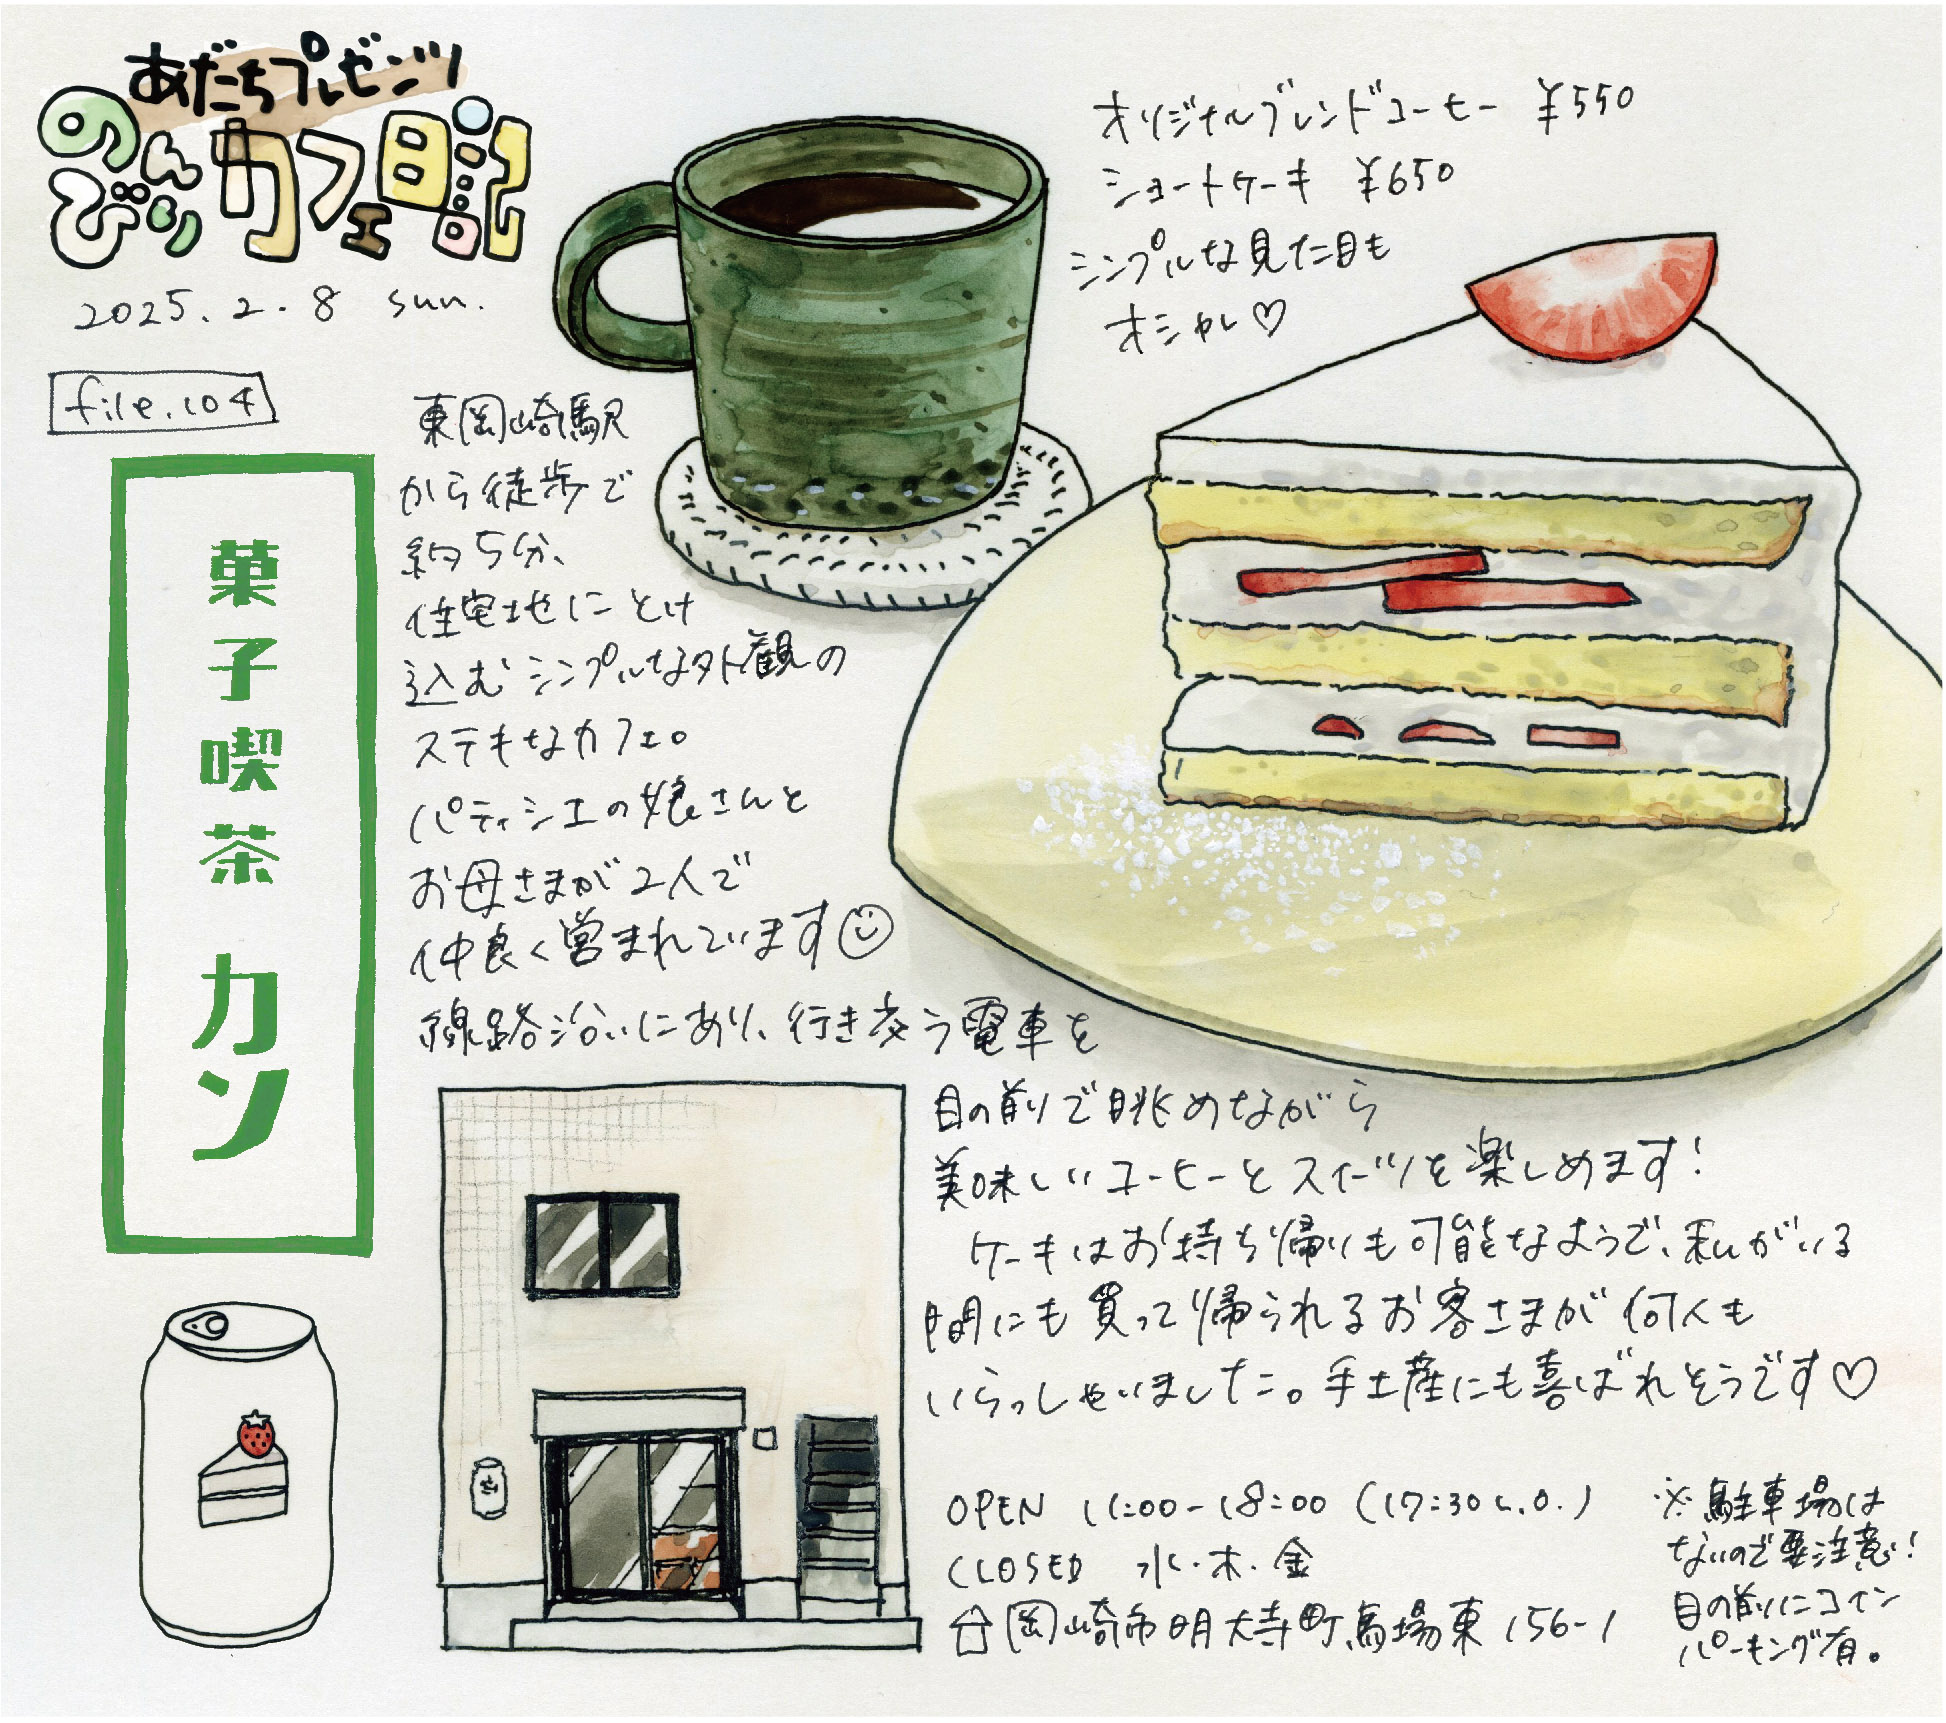 あだちプレゼンツ
のんびりカフェ日記
2025.2.8 sun.
file.104
菓子喫茶 カン
オリジナルブレンドコーヒー ¥550
ショートケーキ ¥650
シンプルな見た目も
オシャレ♡
東岡崎駅
から徒歩で
約5分、
住宅地にとけ
込むシンプルな外観の
ステキなカフェ。
パティシエの娘さんと
お母さまが2人で
仲良く営まれています☺
線路沿いにあり、行き交う電車を
目の前で眺めながら
美味しいコーヒーとスイーツを楽しめます!
ケーキはお持ち帰りも可能なようで、私がいる
間にも買って帰られるお客さまが何人も
いらっしゃいました。手土産にも喜ばれそうです♡
OPEN 11:00-18:00 (17:30 L.O.)
CLOSED 水・木・金
岡崎市明大寺町馬場東156-1
※駐車場は
ないので要注意!
目の前にコイン
パーキング有。